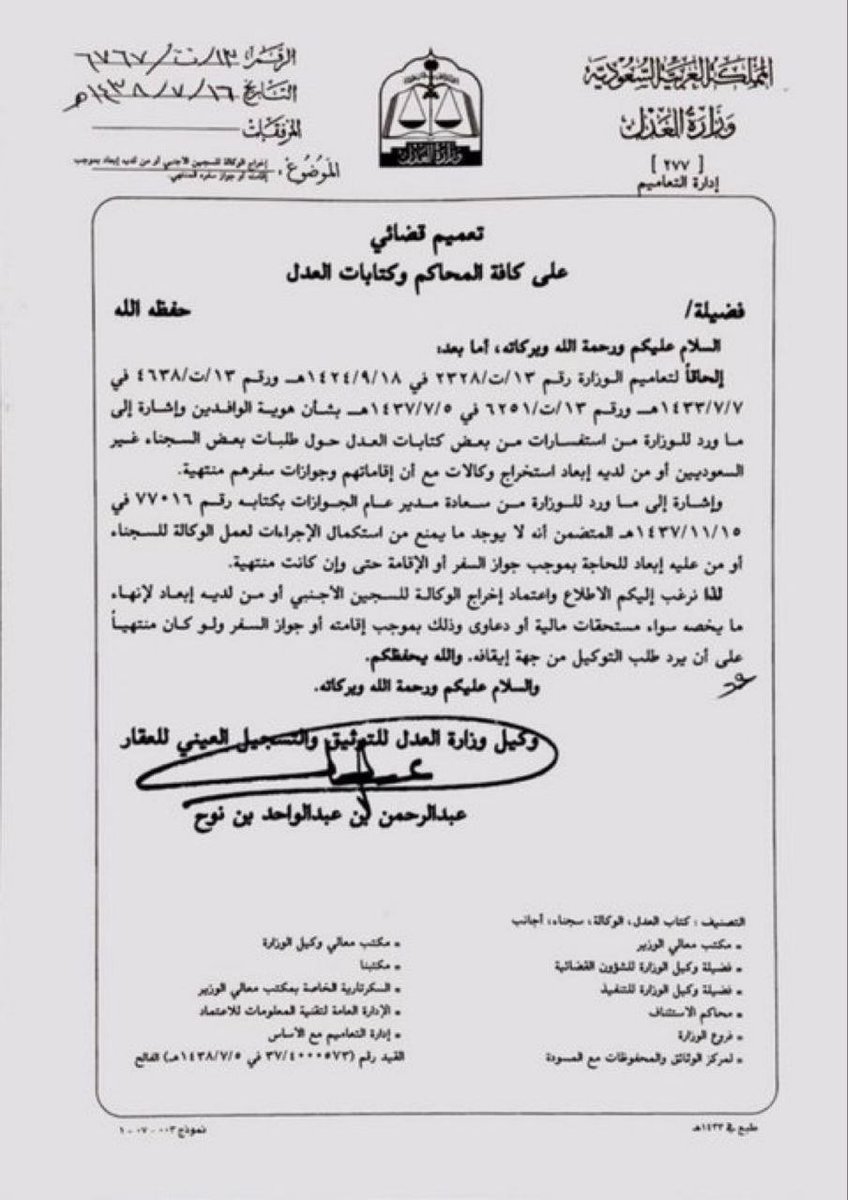 المملكة العربية السعودية
وزارة العدل
[ ٢٧٧ ]
إدارة التعاميم
وزارة العدل
الرقم: ١٣/ت/٦٧٦٧
التاريخ ١٤٣٨/٧/١٦هـ
المرفقات
الموضوع: إخراج الوكالة للسجين الأجنبي أو من لديه إبعاد بموجب
إقامته أو جواز سفره المنتهي.
تعميم قضائي
على كافة المحاكم وكتابات العدل
فضيلة/ حفظه الله
السلام عليكم ورحمة الله وبركاته، أما بعد:
إلحاقاً لتعاميم الوزارة رقم ١٣/ت/٢٣٢٨ في ١٤٢٤/٩/١٨هـ ورقم ١٣/ت/٤٦٣٨ في
١٤٣٣/٧/٧هـ ورقم ١٣/ت/٦٢٥١ في ١٤٣٧/٧/٥هـ بشأن هوية الوافدين وإشارة إلى
ما ورد للوزارة من استفسارات من بعض كتابات العدل حول طلبات بعض السجناء غير
السعوديين أو من لديه إبعاد استخراج وكالات مع أن إقاماتهم وجوازات سفرهم منتهية.
وإشارة إلى ما ورد للوزارة من سعادة مدير عام الجوازات بكتابه رقم ٧٧٠١٦ في
١٤٣٧/١١/١٥هـ المتضمن أنه لا يوجد ما يمنع من استكمال الإجراءات لعمل الوكالة للسجناء
أو من عليه إبعاد للحاجة بموجب جواز السفر أو الإقامة حتى وإن كانت منتهية.
لذا نرغب إليكم الاطلاع واعتماد إخراج الوكالة للسجين الأجنبي أو من لديه إبعاد لإنهاء
ما يخصه سواء مستحقات مالية أو دعاوى وذلك بموجب إقامته أو جواز السفر ولو كان منتهياً
على أن يرد طلب التوكيل من جهة إيقافه. والله يحفظكم.
والسلام عليكم ورحمة الله وبركاته.
وكيل وزارة العدل للتوثيق والتسجيل العيني للعقار
عبدالرحمن بن عبدالواحد بن نوح
التصنيف : كتاب العدل، الوكالة، سجناء، أجانب
▪ مكتب معالي الوزير
▪ فضيلة وكيل الوزارة للشؤون القضائية
▪ فضيلة وكيل الوزارة للتنفيذ
▪ محاكم الاستئناف
▪ فروع الوزارة
▪ لمركز الوثائق والمحفوظات مع المسودة
▪ مكتب معالي وكيل الوزارة
▪ مكتبنا
▪ السكرتارية الخاصة بمكتب معالي الوزير
▪ الإدارة العامة لتقنية المعلومات للاعتماد
▪ إدارة التعاميم مع الأساس
القيد رقم (٣٧/٤٠٠٠٥٧٣ في ١٤٣٨/٧/٥هـ) الفالح
طبع في ١٤٣٣هـ
نموذج ٠٠٣ - ٠٧ - ١